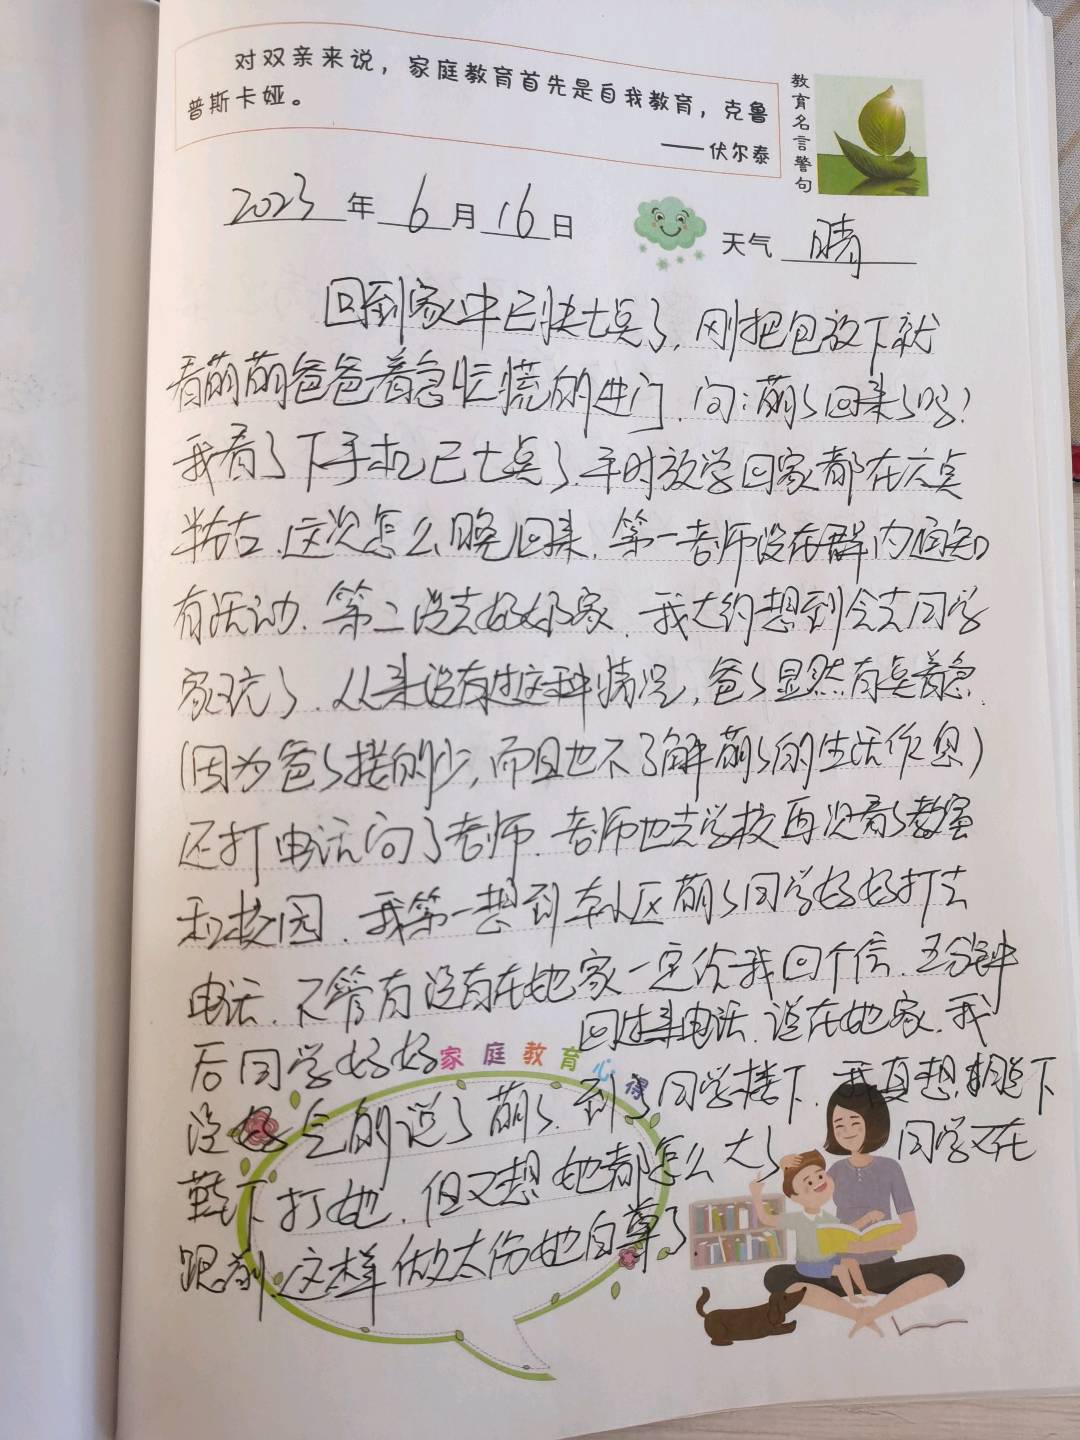 对双亲来说，家庭教育首先是自我教育，克鲁
普斯卡娅。
——伏尔泰
教育名言警句
2023年6月16日
天气 晴
回到家中已快七点了，刚把包放下就
看萌萌爸爸着急忙慌的进门，问：萌々回来了吗？
我看了下手机已七点了，平时放学回家都在六点
半左右，这次怎么晚回来，第一老师没在群内通知
有活动，第二没去好好家，我大约想到会去同学
家玩了，从来没有过这种情况，爸々显然有点着急，
（因为爸々接的少，而且也不了解萌々的生活作息）
还打电话问了老师，老师也去学校再次看了教室
和校园，我第一想到本小区萌々同学好好打去
电话，不管有没有在她家一定给我回个信，五分钟
后同学好好回过来电话，说在她家，我
家庭教育心得
没好气的说了萌々，到了同学楼下，我真想脱下
鞋下打她，但又想她都怎么大了，同学又在
跟前，这样做太伤她自尊了